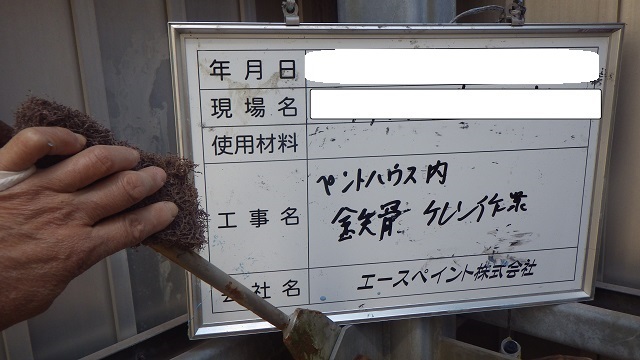 年月日
現場名
使用材料
工事名 ペントハウス内
鉄骨 ケレン作業
会社名 エースペイント株式会社